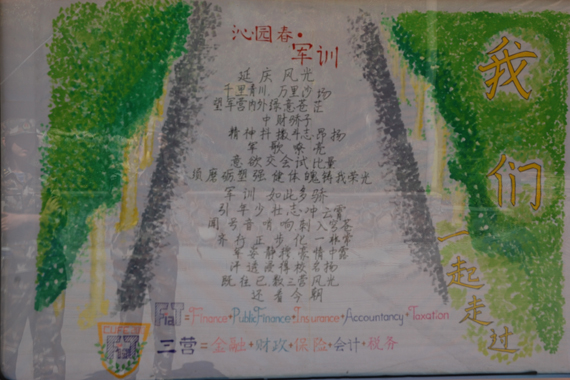 沁园春·
军训
延庆风光
千里青川,万里沙场
望军营内外绿意苍茫
中财骄子
精神抖擞斗志昂扬
军歌嘹亮
意欲交会试比量
须磨砺塑强健体魄铸我荣光
军训如此多骄
引年少壮志冲云霄
闻号音响响刺入穹苍
齐行正步化一
军姿静挎豪情中露
评选
既往已数三营风光
还看今朝
FiaT=Finance+PublicFinance+Insurance+Accountancy+Taxation
三营=金融+财政+保险+会计+税务
我
们
一
起
走
过